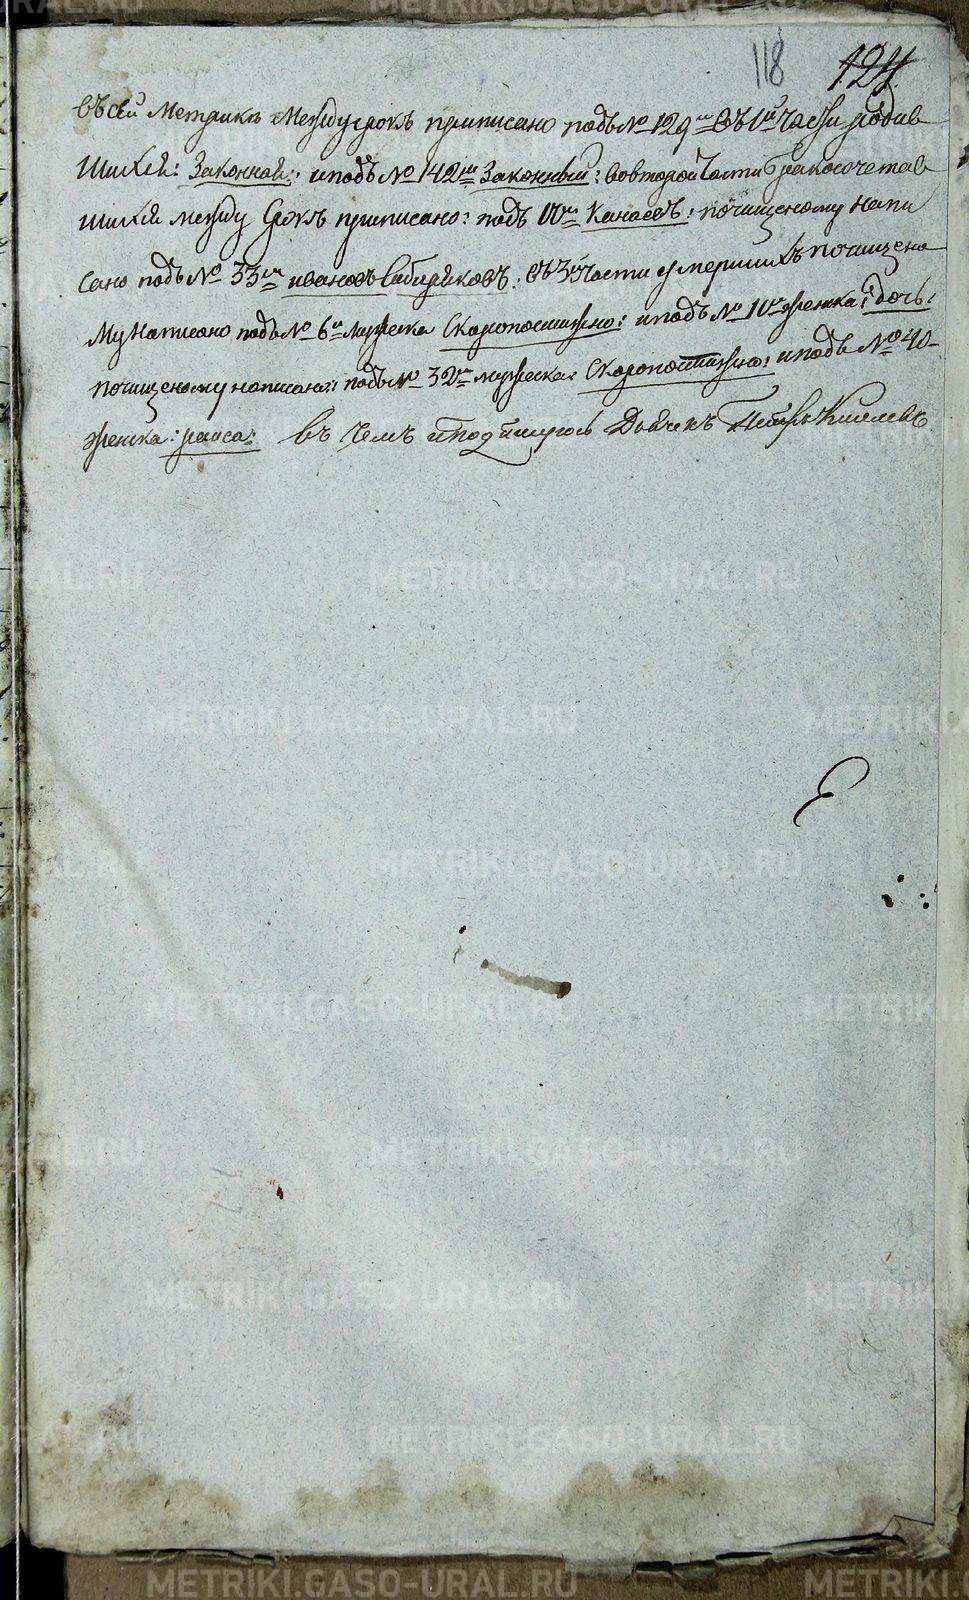 118 124
въ сей Метрикѣ Между срокъ приписано подъ № 129м въ 1й Части родив
шихся: Законной: и подъ № 142м Законный: во второй Части бракосочетав
шихся между срокъ приписано: подъ 10м Канаевъ: почищеному напи
сано подъ № 33м ивановъ Сабиряковъ: въ 3й части умершихъ почищено
му написано подъ № 6м мужеска Скоропостижно: и подъ № 10м женска: дочь:
почищеному написано: подъ № 32м мужеска: Скоропостижно: и подъ № 40
женска: раиса: въ чемъ и подпишусь Дьячекъ Петръ Киселевъ
METRIKI.GASO-URAL.RU